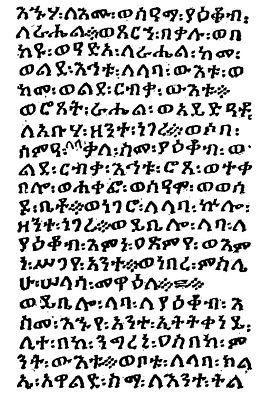 እኍሃ፡ለእሙ፡ወሰዐማ፡ያዕቆብ፡
ለራሔል፨ወጸርኀ፡በቃሉ፡ወበ
ከየ፡ወዓይድአ፡ለራሔል፡ከመ፡
ወልደ፡እኅቱ፡ለላባ፡ውእቱ፡ወ
ከመ፡ወልደ፡ርብቃ፡ውእቱ፨
ወሮጸት፡ራሔል፡ወአይድዓቶ፡
ለአቡሃ፡ዘንተ፡ነገረ፨ወሶበ፡
ሰምዓ፡ላባ፡ቃለ፡ስመ፡ያዕቆብ፡ወ
ልደ፡ርብቃ፡እኅቱ፡ሮጸ፡ወተቀ
በሎ፡ወሐቀፎ፡ወሰዐሞ፡ወወሰ
ደ፡ቤቶ፨ወነገሮ፡ለላባ፡ኵሎ፡
ዘንተ፡ነገረ፨ወይቤሎ፡ላባ፡ለ
ያዕቆብ፡እምነ፡ዐጽምየ፡ወእም
ነ፡ሥጋየ፡አንተ፨ወነበረ፡ምስሌ
ሁ፡ሠላሳ፡መዋዕለ፨
ወይቤሎ፡ላባ፡ለያዕቆብ፡እ
ስመ፡እኁየ፡አንተ፡ኢትትቀነይ፡
ሊተ፡በከ፡ንግረኒ፡ዐስበከ፡ም
ንት፡ውእቱ፨ወቦቱ፡ለላባ፡ክል
ኤ፡አዋልድ፡ስማ፡ለእንተ፡ትል